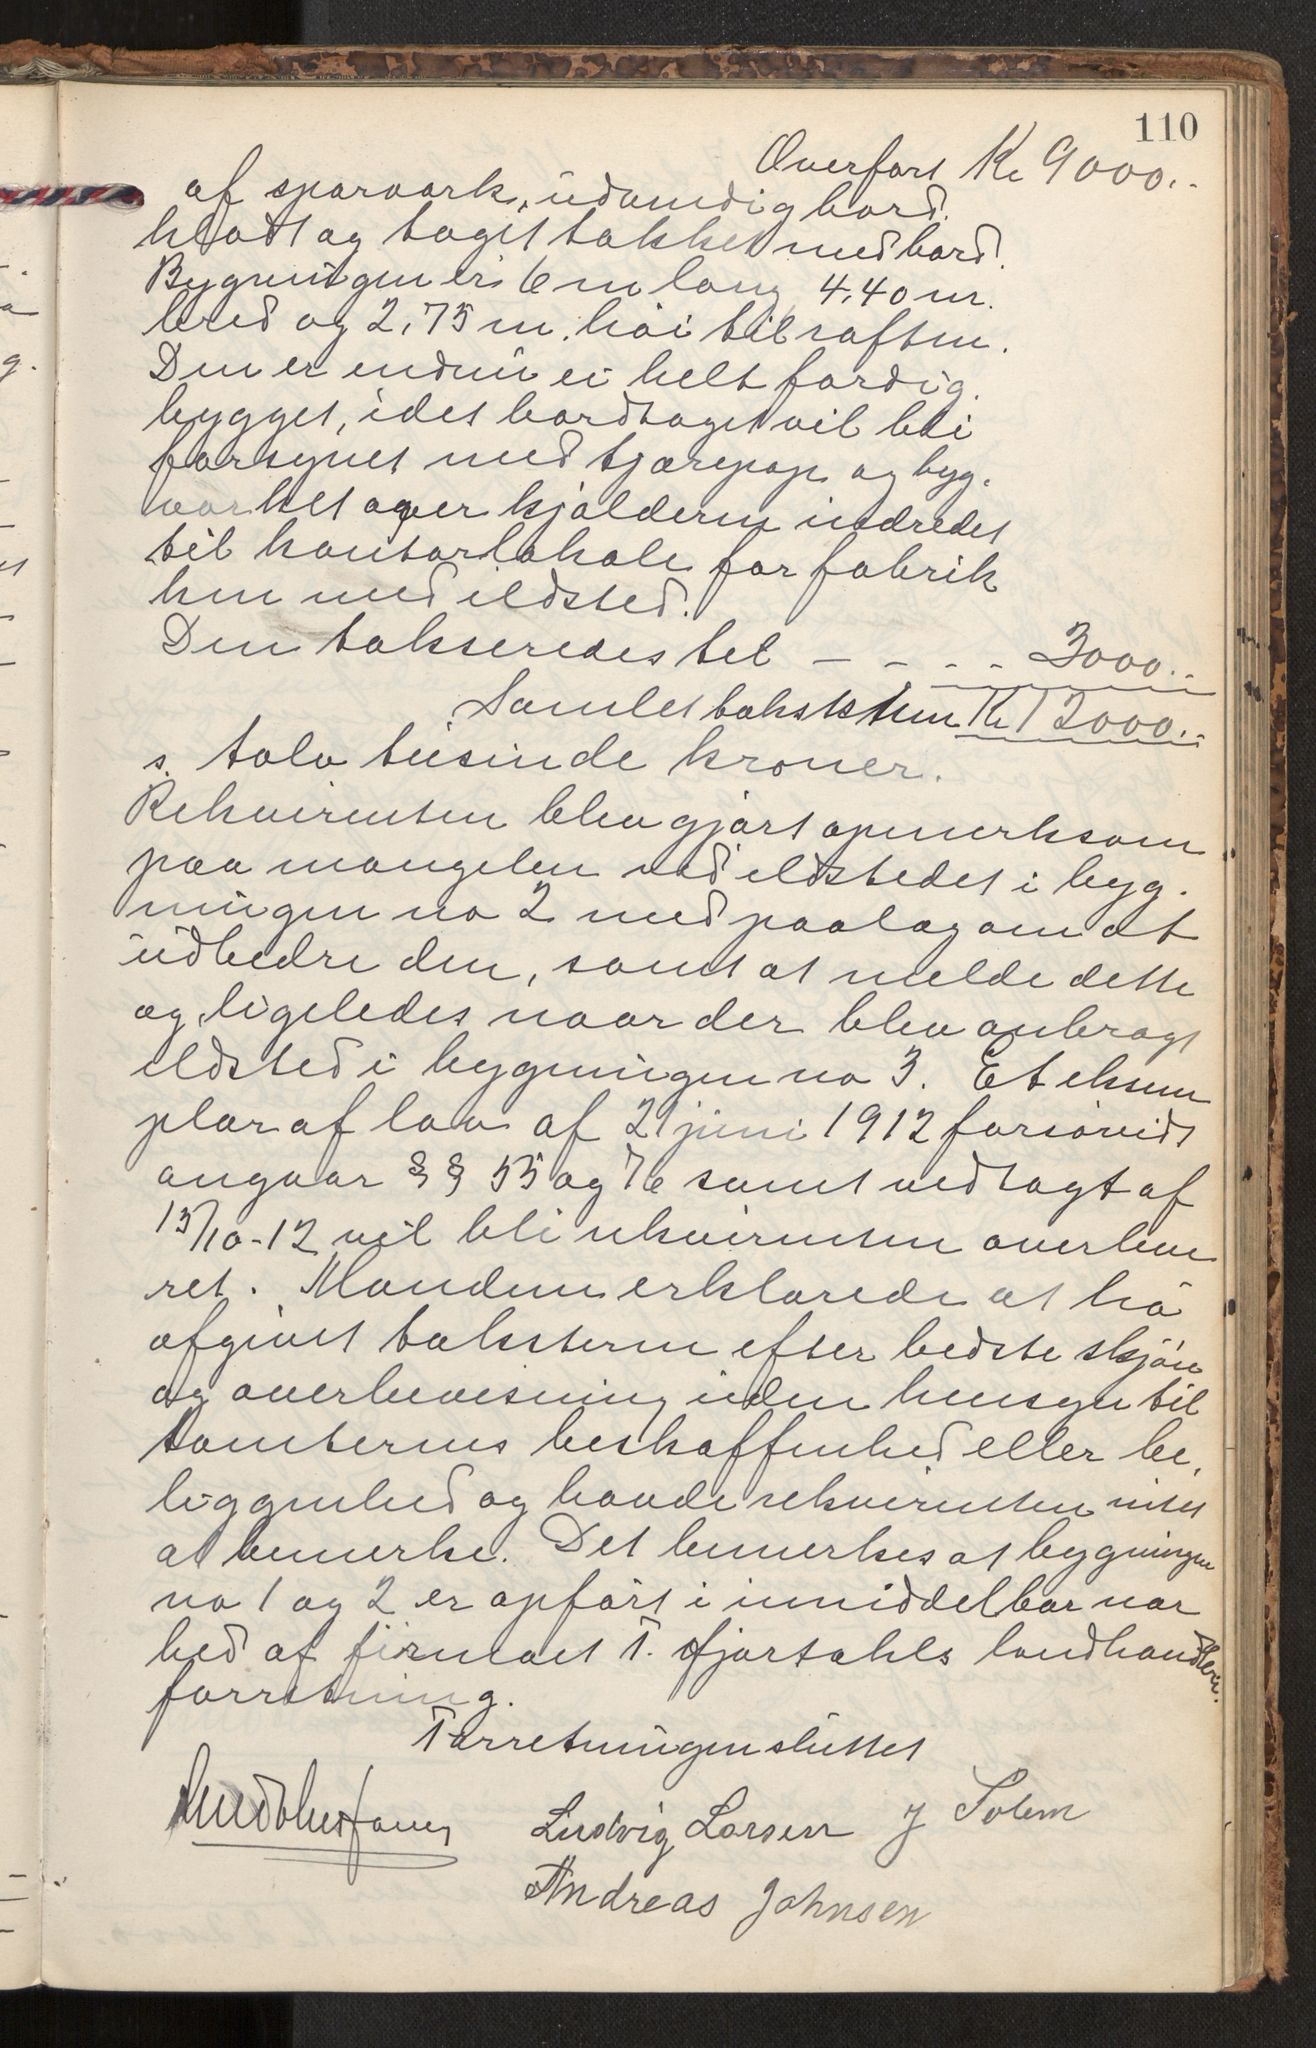 110
Overført Kr 9000..
af sparværk, udvendig bord.
klædt og taget tækket med bord.
Bygningen er 6 m lang 4,40 m.
bred og 2,75 m. høi til raften.
Den er endnu ei helt færdig.
bygget, idet bordtaget vil bli
forsynet med tjærepap og byg.
værket over kjælderen indredet
til kontorlokale for fabrik
ken med ildsted.
Den takseredes til – - - - 3000..
Samlet takstsum Kr 12000..
s. tolv tusinde kroner.
Rekvirenten blev gjort opmerksom
paa mangelen ved ildstedet i byg.
ningen no 2 med paalæg om at
udbedre den, samt at melde dette
og ligeledes naar der blev anbragt
ildsted i bygningen no 3. Et eksem
plar af lov af 21 juni 1912 forsåvidt
angaar §§ 55 og 76 samt vedtagt af
15/10-12 vil bli rekvirenten overleve
ret. Mændene erklærede at ha
afgivet taksterne efter bedste skjøn
og overbevisning uden hensyn til
tomternes beskaffenhed eller be,
liggenhed og havde rekvirenten intet
at bemerke. Det bemerkes at bygningen
no 1 og 2 er opført i umiddelbar nær
hed af firmaet T. Gjørtahls landhandler.
forretning.
Forretningen sluttet
Ludvig Larsen J Solem
Andreas Johnsen